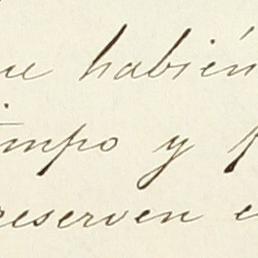 ue habién
impo y
reserven e